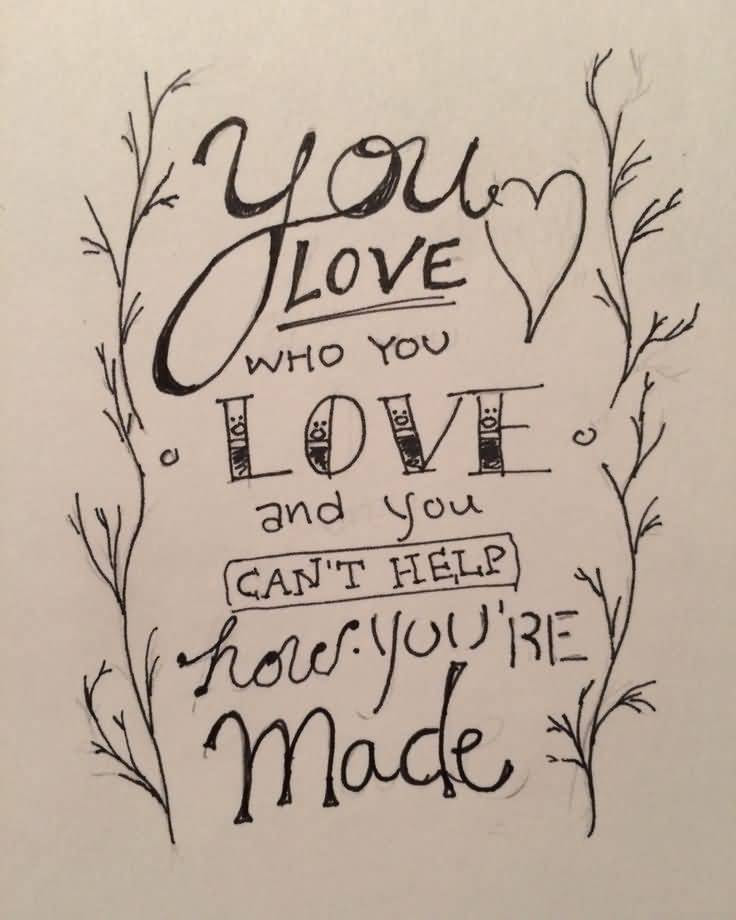 you
LOVE
WHO YOU
LOVE
and you
CAN'T HELP
how YOU'RE
Made